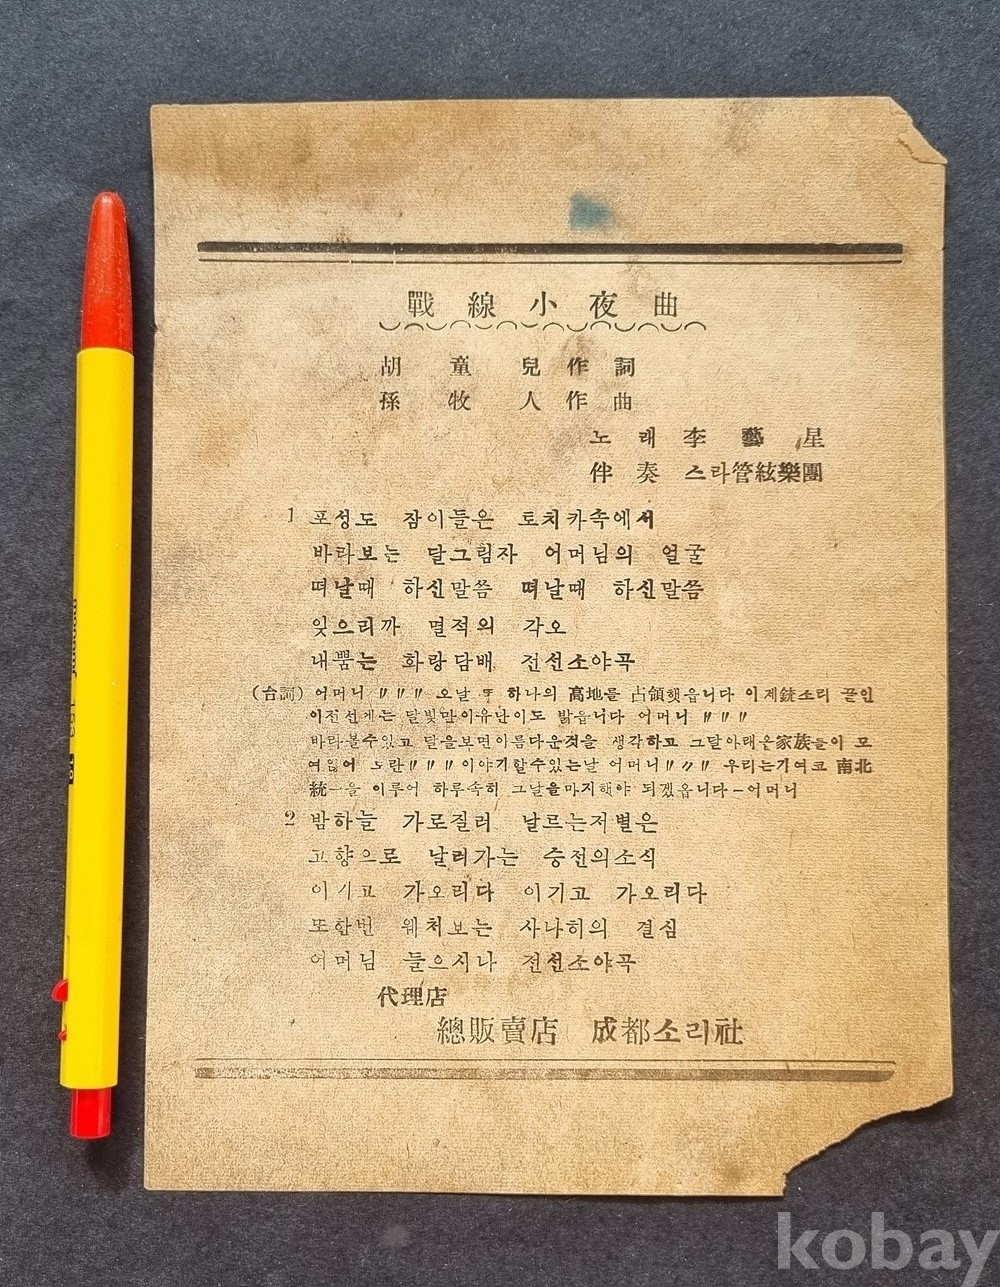 戰線小夜曲
胡童兒作詞
孫牧人作曲
노래 李藝星
伴奏 스타管絃樂團
1 포성도 잠이들은 토치카속에서
바라보는 달그림자 어머님의 얼굴
떠날때 하신말씀 떠날때 하신말씀
잊으리까 멸적의 각오
내뿜는 화랑담배 전선소야곡
(台詞) 어머니 〃〃〃 오날 또 하나의 高地를 占領햇읍니다 이제銃소리 끝인
이전선게는 달빛만이유난이도 밝읍니다 어머니 〃〃〃
바라볼수있고 달을보면아름다운것을 생각하고 그달아래은家族들이 모
여있어 도란〃〃〃이야기할수있는날 어머니〃〃〃 우리는기여코 南北
統一을 이루어 하루속히 그날을마지해야 되겠읍니다-어머니
2 밤하늘 가로질러 날르는저별은
고향으로 날러가는 승전의소식
이기고 가오리다 이기고 가오리다
또한번 웨처보는 사나히의 결심
어머님 들으시나 전선소야곡
代理店
總販賣店 成都소리社
monami 153 BIG
kobay